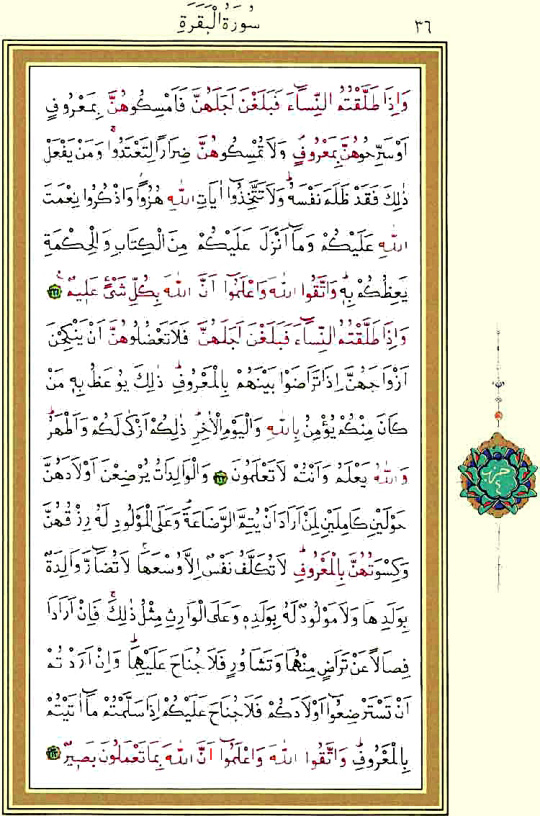 ٣٦
سُورَةُ الْبَقَرَةِ
وَاِذَا طَلَّقْتُمُ النِّسَٓاءَ فَبَلَغْنَ اَجَلَهُنَّ فَاَمْسِكُوهُنَّ بِمَعْرُوفٍ
اَوْ سَرِّحُوهُنَّ بِمَعْرُوفٍۖ وَلَا تُمْسِكُوهُنَّ ضِرَارًا لِتَعْتَدُواۚ وَمَنْ يَفْعَلْ
ذٰلِكَ فَقَدْ ظَلَمَ نَفْسَهُۜ وَلَا تَتَّخِذُٓوا اٰيَاتِ اللّٰهِ هُزُوًاۘ وَاذْكُرُوا نِعْمَتَ
اللّٰهِ عَلَيْكُمْ وَمَٓا اَنْزَلَ عَلَيْكُمْ مِنَ الْكِتَابِ وَالْحِكْمَةِ
يَعِظُكُمْ بِهِۜ وَاتَّقُوا اللّٰهَ وَاعْلَمُٓوا اَنَّ اللّٰهَ بِكُلِّ شَيْءٍ عَلِيمٌ۟
وَاِذَا طَلَّقْتُمُ النِّسَٓاءَ فَبَلَغْنَ اَجَلَهُنَّ فَلَا تَعْضُلُوهُنَّ اَنْ يَنْكِحْنَ
اَزْوَاجَهُنَّ اِذَا تَرَاضَوْا بَيْنَهُمْ بِالْمَعْرُوفِۜ ذٰلِكَ يُوعَظُ بِهِ مَنْ
كَانَ مِنْكُمْ يُؤْمِنُ بِاللّٰهِ وَالْيَوْمِ الْاٰخِرِۜ ذٰلِكُمْ اَزْكٰى لَكُمْ وَاَطْهَرُۜ
وَاللّٰهُ يَعْلَمُ وَاَنْتُمْ لَا تَعْلَمُونَ وَالْوَالِدَاتُ يُرْضِعْنَ اَوْلَادَهُنَّ
حَوْلَيْنِ كَامِلَيْنِ لِمَنْ اَرَادَ اَنْ يُتِمَّ الرَّضَاعَةَۜ وَعَلَى الْمَوْلُودِ لَهُ رِزْقُهُنَّ
وَكِسْوَتُهُنَّ بِالْمَعْرُوفِۜ لَا تُكَلَّفُ نَفْسٌ اِلَّا وُسْعَهَاۚ لَا تُضَٓارَّ وَالِدَةٌ
بِوَلَدِهَا وَلَا مَوْلُودٌ لَهُ بِوَلَدِهِ وَعَلَى الْوَارِثِ مِثْلُ ذٰلِكَۚ فَاِنْ اَرَادَا
فِصَالًا عَنْ تَرَاضٍ مِنْهُمَا وَتَشَاوُرٍ فَلَا جُنَاحَ عَلَيْهِمَاۜ وَاِنْ اَرَدْتُمْ
اَنْ تَسْتَرْضِعُٓوا اَوْلَادَكُمْ فَلَا جُنَاحَ عَلَيْكُمْ اِذَا سَلَّمْتُمْ مَٓا اٰتَيْتُمْ
بِالْمَعْرُوفِۜ وَاتَّقُوا اللّٰهَ وَاعْلَمُٓوا اَنَّ اللّٰهَ بِمَا تَعْمَلُونَ بَصِيرٌ
حزب
٤